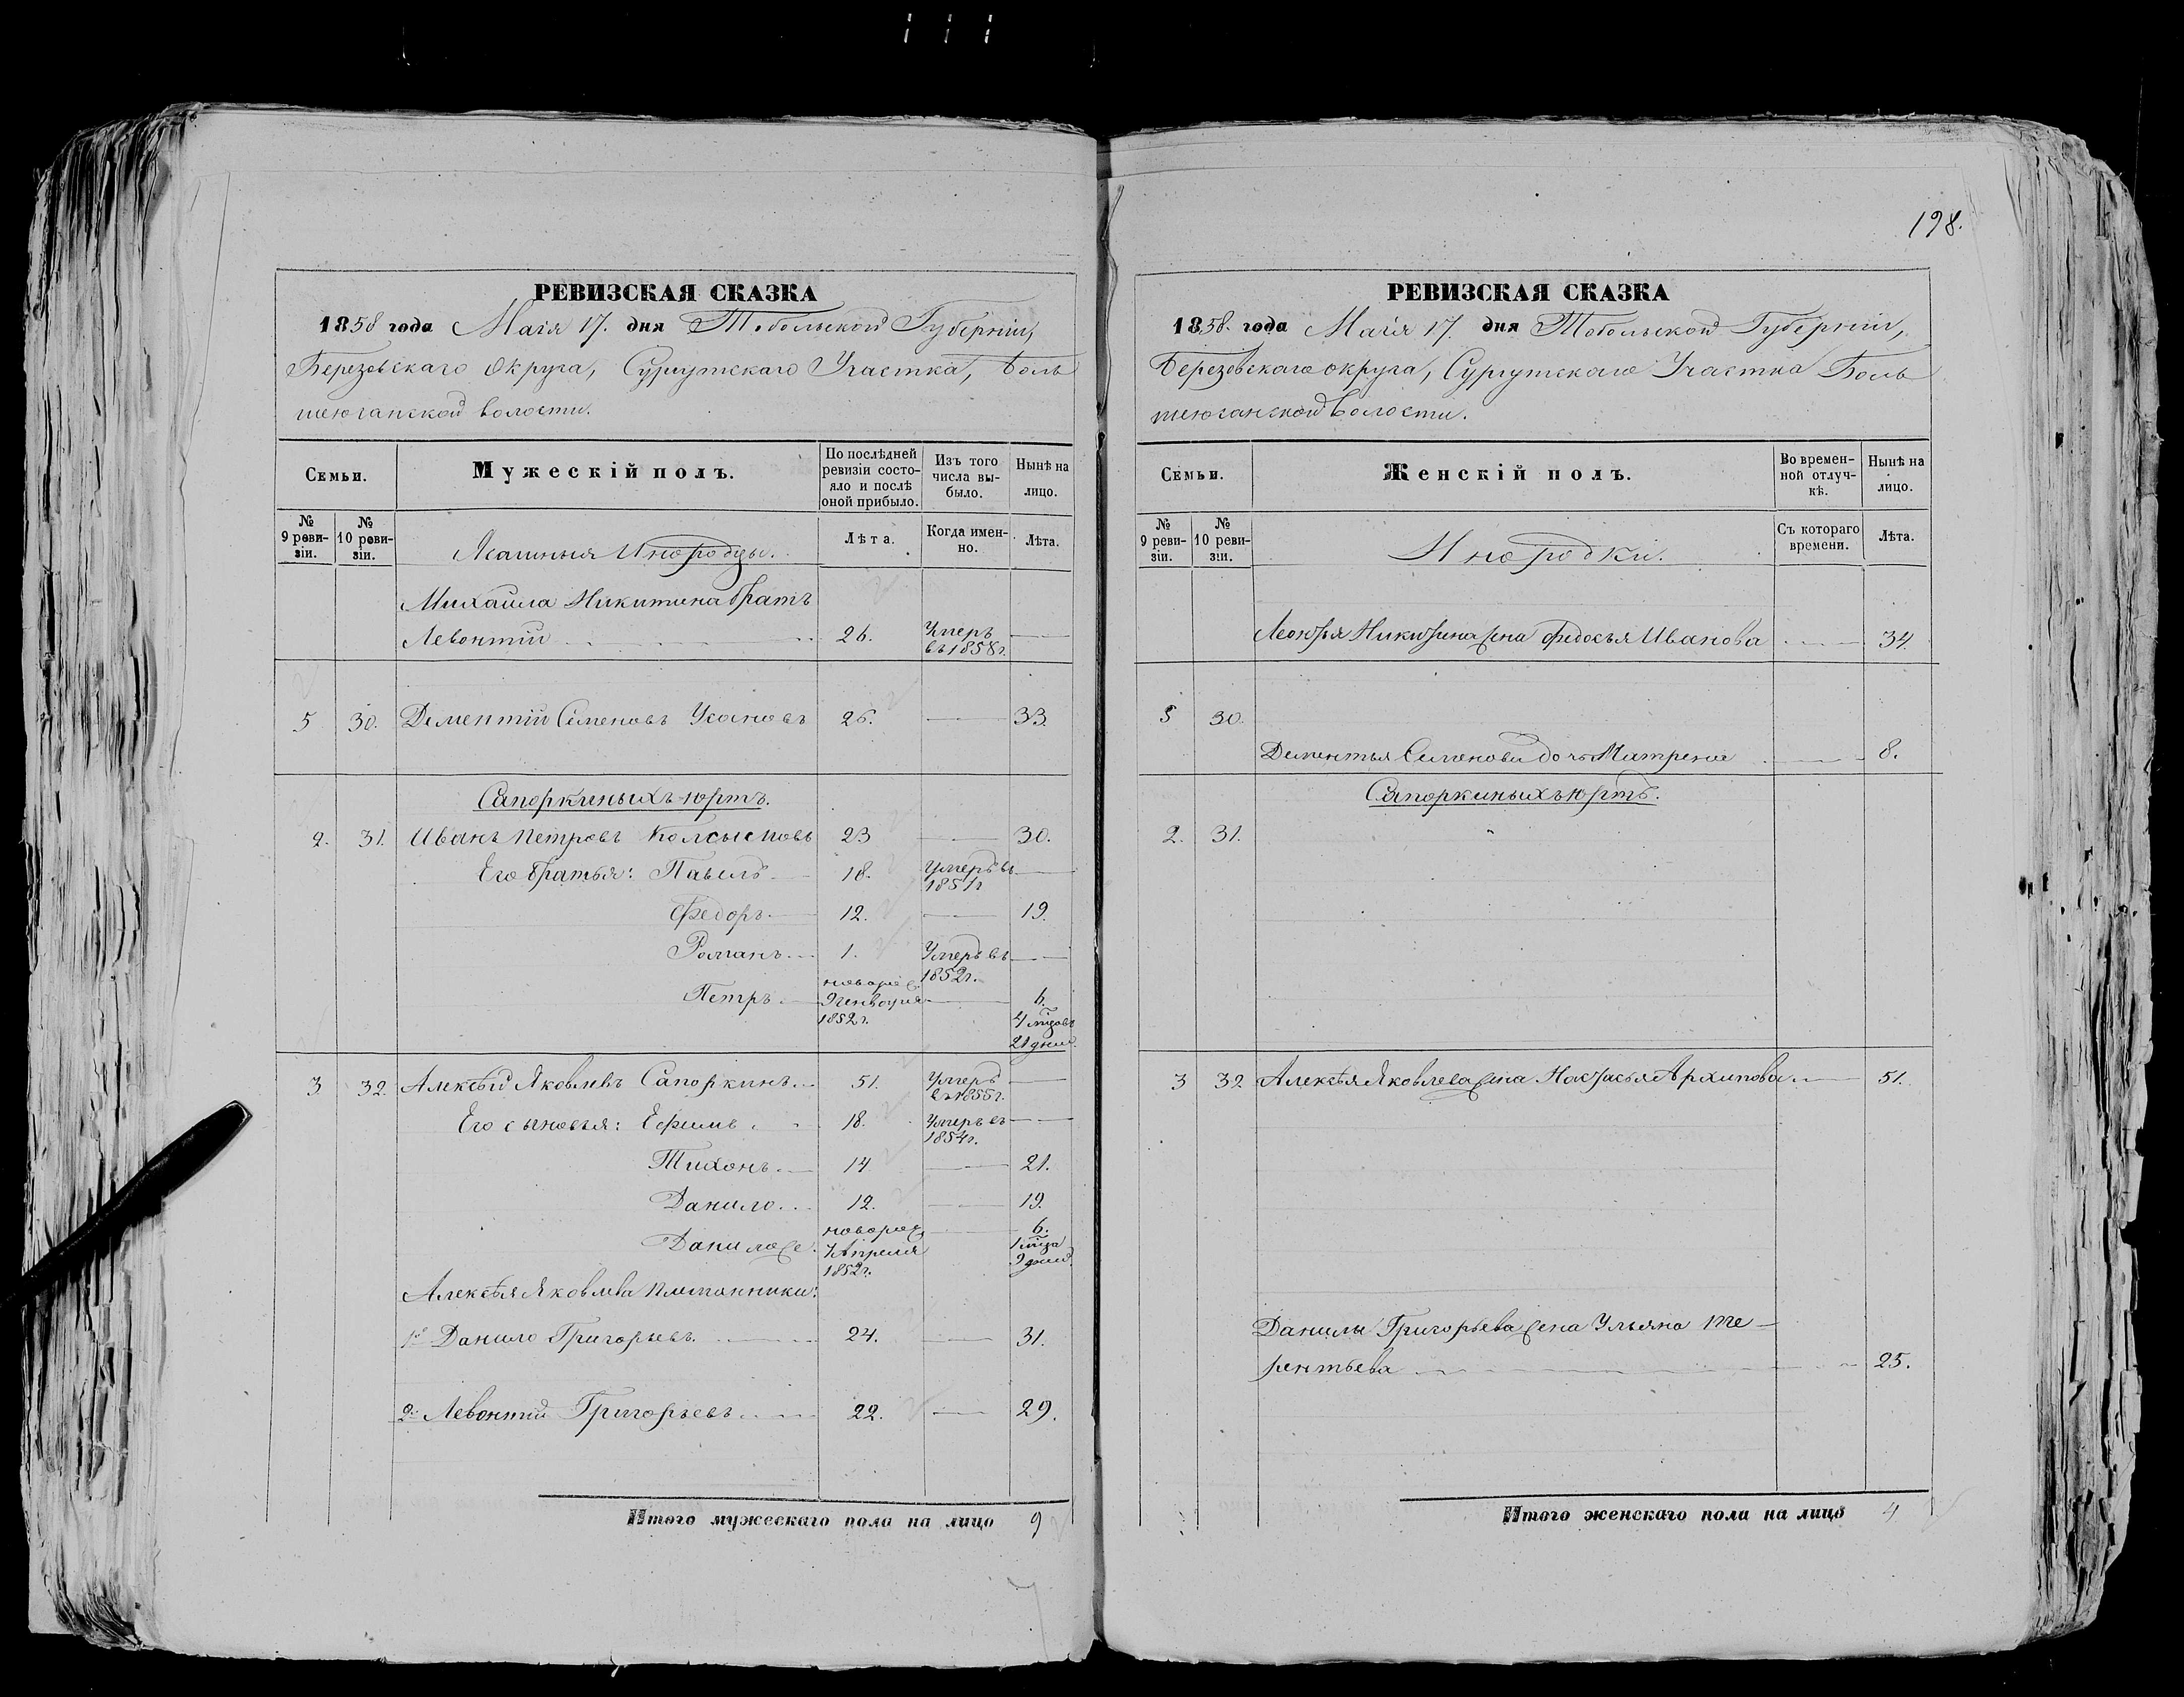 РЕВИЗСКАЯ СКАЗКА
1858 года Маія 17. дня Тобольской Губерніи,
Березовскаго Округа, Сургутскаго Участка, Боль
шеюганской волости.
Семьи.
Мужескій полъ.
По послѣдней ревизіи состояло и послѣ оной прибыло.
Изъ того числа выбыло.
Нынѣ на лицо.
№ 9 ревизіи.
№ 10 ревизіи.
Ясашныя Инородцы.
Лѣта.
Когда именно.
Лѣта.
Михайла Никитина братъ
Левонтій 26. Умеръ въ 1858 г.
5 30. Дементій Семеновъ Усановъ 26. 33.
Сапоркиныхъ юртъ.
2. 31. Иванъ Петровъ Колсысповъ 23 30.
Его братья: Павелъ 18. Умеръ въ 1851 г
Федоръ 12. 19.
Романъ 1. Умеръ въ 1852 г.
Петръ новорож. 9 генваря 1852 г. 6. 4 мѣцовъ 21 дней.
3 32. Алексѣй Яковлевъ Сапоркинъ 51. Умеръ въ 1855 г.
Его сыновья: Ефимъ 18. Умеръ въ 1854 г.
Тихонъ 14 21.
Данило 12. 19.
Даниложе новорож. 7 Апреля 1852 г. 6. 1 мѣца 9 дней.
Алексѣя Яковлева племянники:
1й Данило Григорьевъ 24. 31.
2й Левонтій Григорьевъ 22. 29.
Итого мужескаго пола на лицо 9
198.
РЕВИЗСКАЯ СКАЗКА
1858. года Маія 17. дня Тобольской Губерніи,
Березовскаго округа, Сургутскаго Участка Боль
шеюганской волости.
Семьи.
Женскій полъ.
Во временной отлучкѣ.
Нынѣ на лицо.
№ 9 ревизіи.
№ 10 ревизіи.
Инородки.
Съ котораго времени.
Лѣта.
Леонтья Никитина жена Федосья Иванова 34.
5 30.
Дементья Семенова дочь Матрена 8.
Сапоркиныхъ юртъ.
2. 31.
3 32 Алексѣя Яковлева жена Настасья Архипова 51.
Данилы Григорьева жена Ульяна Те-
рентьева 25.
Итого женскаго пола на лицо 4